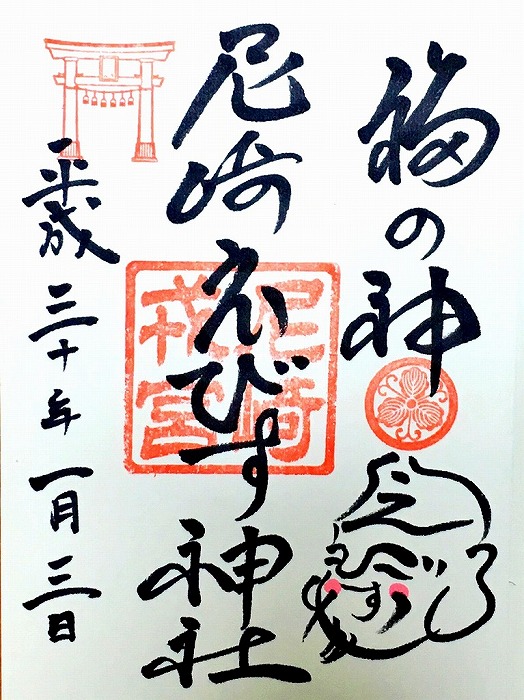 福の神
尼崎えびす神社
尼崎
戎宮
平成三十年一月三日